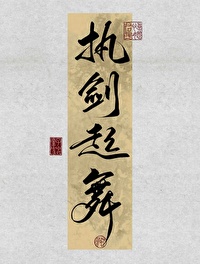 执剑起舞